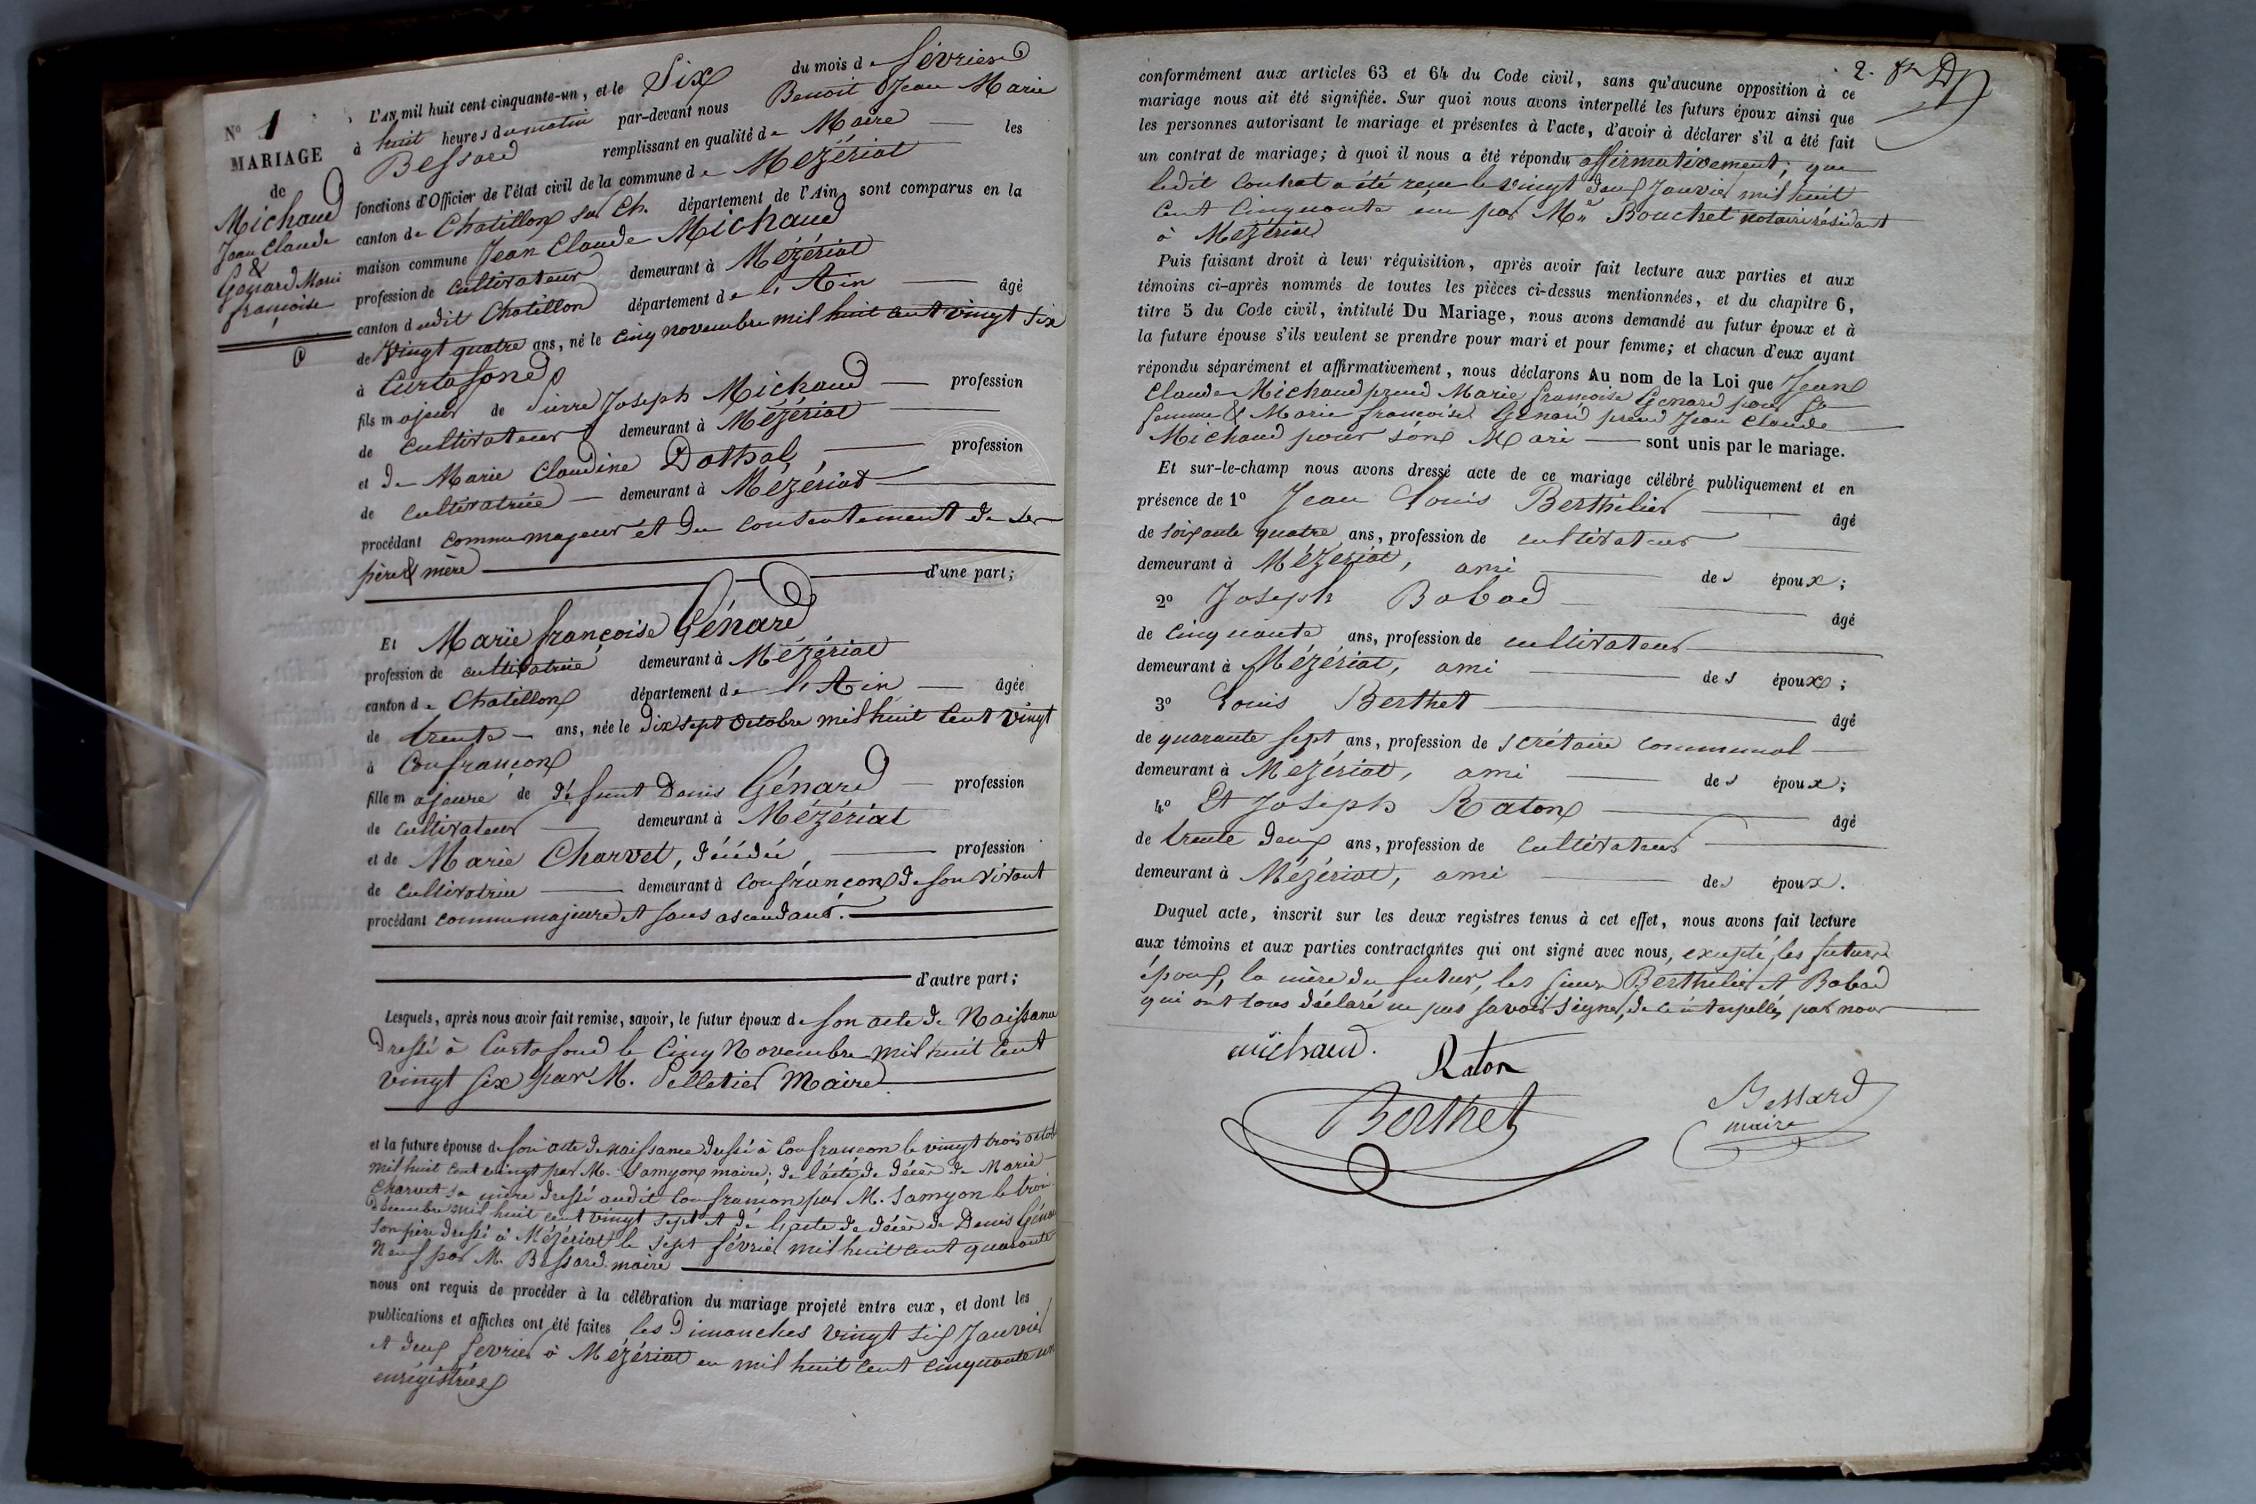 N° 1
MARIAGE
de
Michaud
Jean Claude
&
Génard Marie
françoise
L'AN mil huit cent cinquante-un, et le Six du mois de février
à huit heures du matin par-devant nous Benoit Jean Marie
Bessard remplissant en qualité de Maire les
fonctions d'Officier de l'état civil de la commune de Mézériat
canton de Chatillon sur Ch. département de l'Ain, sont comparus en la
maison commune Jean Claude Michaud
profession de cultivateur demeurant à Mézériat
canton dudit Chatillon département de l'Ain âgé
de vingt quatre ans, né le cinq novembre mil huit cent vingt six
à Curtafond
fils majeur de Pierre Joseph Michaud profession
de cultivateur demeurant à Mézériat
et de Marie Claudine Dothal, profession
de cultivatrice demeurant à Mézériat
procédant comme majeur et du consentement de ses
père & mère d'une part;
Et Marie françoise Génard
profession de cultivatrice demeurant à Mézériat
canton de Chatillon département de l'Ain âgée
de trente ans, née le dix sept octobre mil huit cent vingt
à Confrançon
fille majeure de défunt Denis Génard profession
de cultivateur demeurant à Mézériat
et de Marie Charvet, décédée, profession
de cultivatrice demeurant à Confrançon de son vivant
procédant comme majeure et sans ascendant.
d'autre part;
Lesquels, après nous avoir fait remise, savoir, le futur époux de son acte de Naissance
dressé à Curtafond le Cinq Novembre mil huit cent
vingt six par M. Pelletier Maire
et la future épouse de son acte de naissance dressé à Confrançon le vingt trois octob
mil huit cent vingt par M. Samyon maire; de l'acte de décès de Marie
Charvet sa mère dressé audit Confrançon par M. Samyon le trois
décembre mil huit cent vingt sept et de l'acte de décès de Denis Géna
son père dressé à Mézériat le sept février mil huit cent quarante
Neuf par M. Bessard maire
nous ont requis de procéder à la célébration du mariage projeté entre eux, et dont les
publications et affiches ont été faites les Dimanches vingt six Janvier
et deux février à Mézériat en mil huit cent cinquante un
enrégistrées
2.
conformément aux articles 63 et 64 du Code civil, sans qu'aucune opposition à ce
mariage nous ait été signifiée. Sur quoi nous avons interpellé les futurs époux ainsi que
les personnes autorisant le mariage et présentes à l'acte, d'avoir à déclarer s'il a été fait
un contrat de mariage; à quoi il nous a été répondu affirmativement; que
ledit Contrat a été reçu le vingt deux Janvier mil huit
cent Cinquante un par Me Bouchet notaire résidant
à Mézériat
Puis faisant droit à leur réquisition, après avoir fait lecture aux parties et aux
témoins ci-après nommés de toutes les pièces ci-dessus mentionnées, et du chapitre 6,
titre 5 du Code civil, intitulé Du Mariage, nous avons demandé au futur époux et à
la future épouse s'ils veulent se prendre pour mari et pour femme; et chacun d'eux ayant
répondu séparément et affirmativement, nous déclarons Au nom de la Loi que Jean
Claude Michaud prend Marie françoise Génard pour sa
femme & Marie françoise Génard prend Jean Claude
Michaud pour son Mari sont unis par le mariage.
Et sur-le-champ nous avons dressé acte de ce mariage célébré publiquement et en
présence de 1° Jean Louis Berthilier âgé
de soixante quatre ans, profession de cultivateur
demeurant à Mézériat, ami des époux;
2° Joseph Bobad âgé
de cinquante ans, profession de cultivateur
demeurant à Mézériat, ami des époux;
3° Louis Berthet âgé
de quarante sept ans, profession de secrétaire communal
demeurant à Mézériat, ami des époux;
4° Et Joseph Raton âgé
de trente deux ans, profession de cultivateur
demeurant à Mézériat, ami des époux.
Duquel acte, inscrit sur les deux registres tenus à cet effet, nous avons fait lecture
aux témoins et aux parties contractantes qui ont signé avec nous, excepté les futurs
époux, la mère du futur, les sieurs Berthilier et Bobad
qui ont tous déclaré ne pas savoir signer, de ce interpellés par nous
michaud.
Raton
Berthet
Bessard
maire